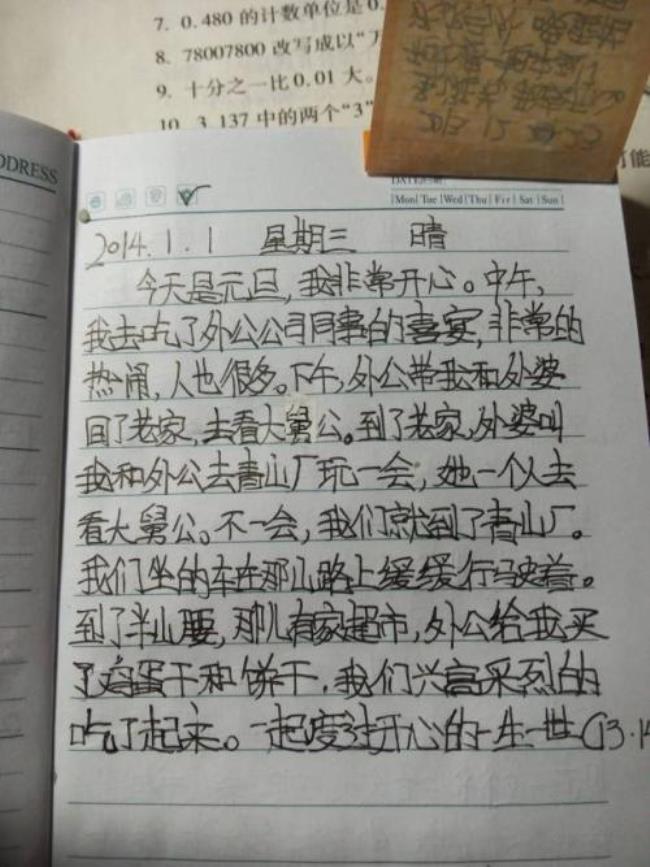 7. 0.480 的计数单位是0.
8. 78007800 改写成以“万
9. 十分之一比 0.01 大。
10. 3.137 中的两个“3”
可能
DDRESS
DATE
Mon Tue Wed Thu Fri Sat Sun
2014.1.1 星期三 晴
今天是元旦,我非常开心。中午,
我去吃了外公公司同事的喜宴,非常的
热闹,人也很多。下午,外公带我和外婆
回了老家,去看大舅公。到了老家,外婆叫
我和外公去青山厂玩一会,她一个人去
看大舅公。不一会,我们就到了青山厂。
我们坐的车在那山路上缓缓行驶着。
到了半山腰,那儿有家超市,外公给我买
了鸡蛋干和饼干,我们兴高采烈的
吃了起来。一起度过开心的一生一世(13.14